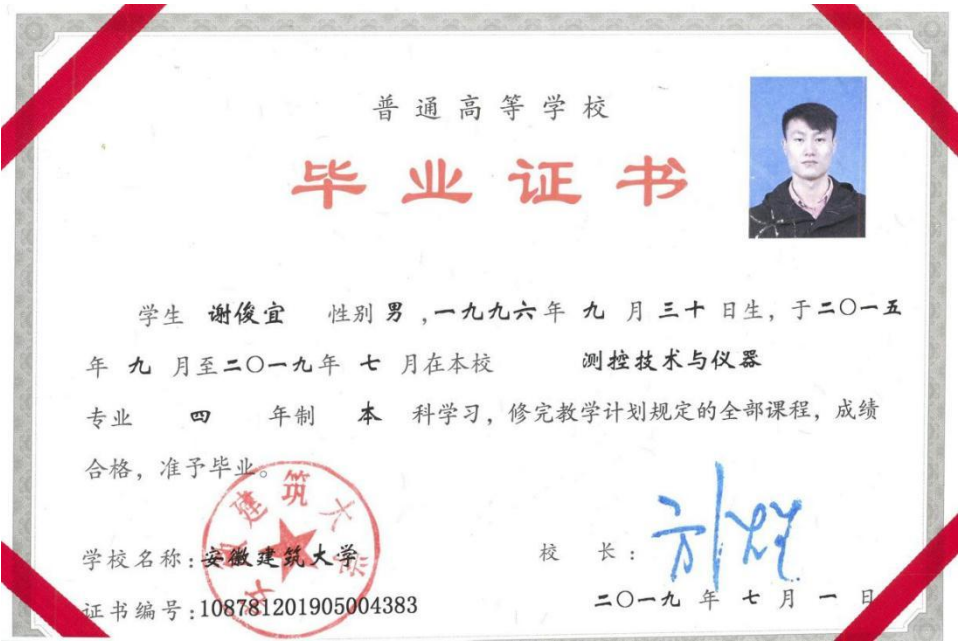 普通高等学校
毕业证书
学生 谢俊宜 性别 男 ,一九九六年 九 月 三十 日生, 于二〇一五
年 九 月至二〇一九年 七 月在本校 测控技术与仪器
专业 四 年制 本 科学习, 修完教学计划规定的全部课程, 成绩
合格, 准予毕业。
安徽建筑大学
学校名称:安徽建筑大学 校 长:
证书编号:108781201905004383 二〇一九 年 七 月 一 日